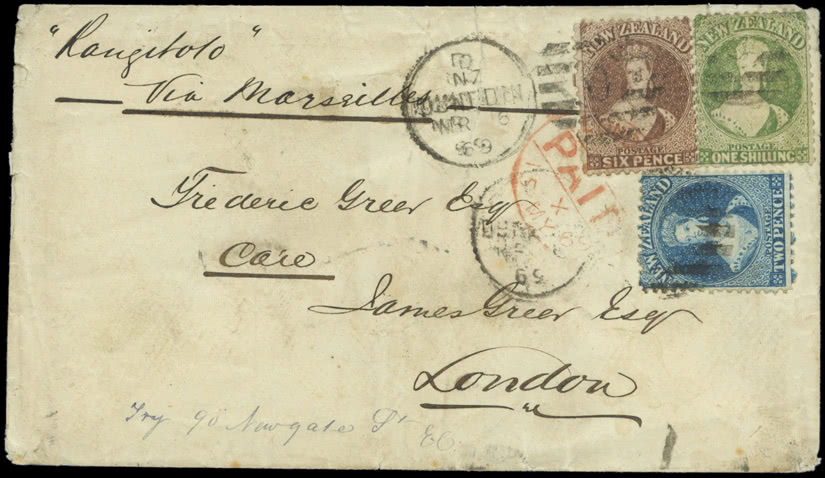 "Rangitoto"
Via Marseilles
Frederic Greer Esq
Care
James Greer Esq
London
Try 90 Newgate St
EC
NEW ZEALAND
POSTAGE
SIX PENCE
NEW ZEALAND
POSTAGE
ONE SHILLING
NEW ZEALAND
POSTAGE
TWO PENCE
PAID
NZ
69
69